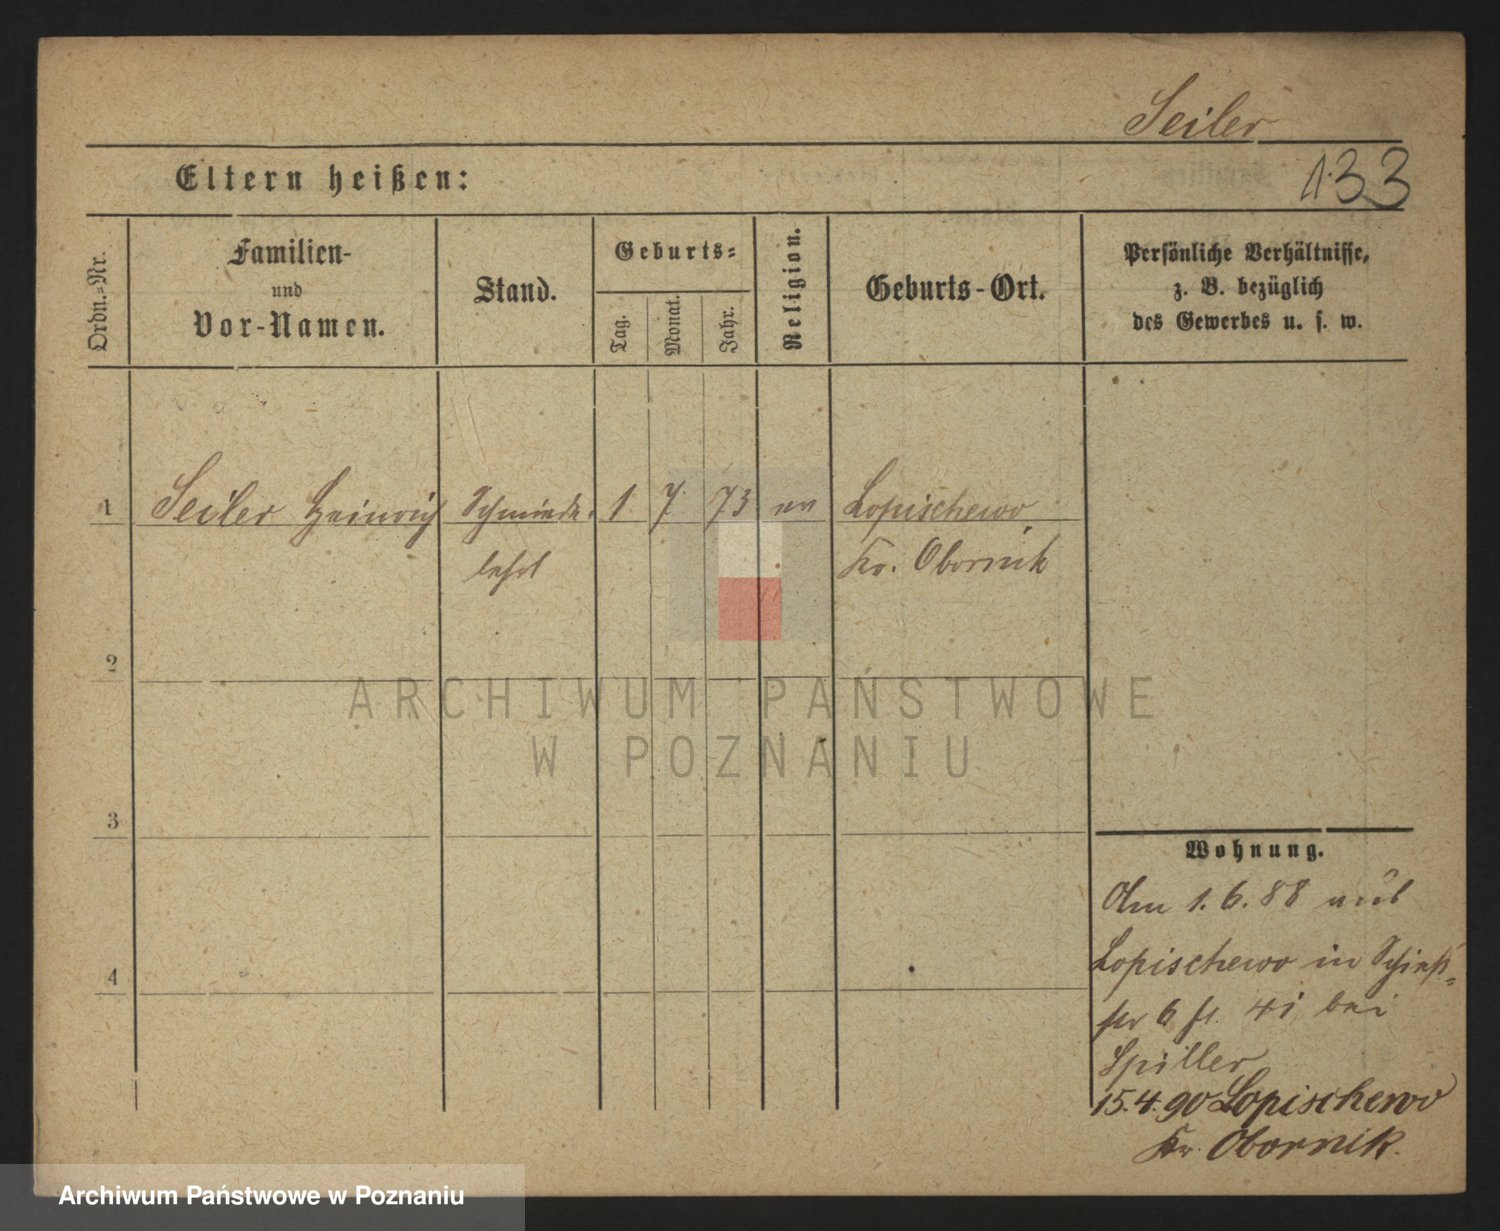 Seiler
133
Eltern heißen:
Ordn.=Nr.
Familien-
und
Vor-Namen.
Stand.
Geburts=
Tag.
Monat.
Jahr.
Religion.
Geburts-Ort.
Persönliche Verhältnisse,
z. B. bezüglich
des Gewerbes u. s. w.
1
Seiler Heinrich
Schmiede-
lehrl
1
7
73
ev
Lopischewo
Kr. Obornik
2
3
4
Wohnung.
Am 1.6.88 aus
Lopischewo in Schieß=
str 6 bei
Spiller
15.4.90 Lopischewo
Kr. Obornik.
ARCHIWUM PAŃSTWOWE
W POZNANIU
Archiwum Państwowe w Poznaniu